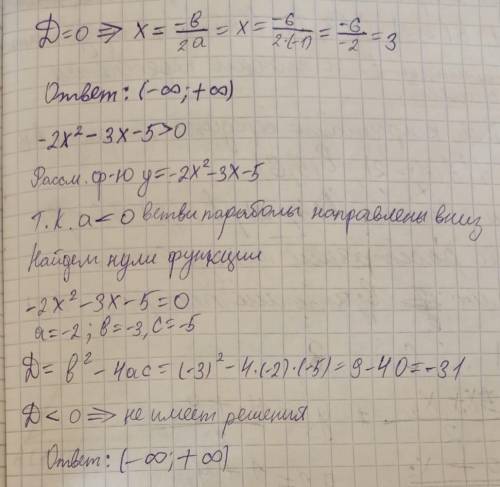 D=0 => x = -в/2а = x = -6/2·(-1) = -6/-2 = 3
Ответ: (-∞; +∞)
-2x²-3x-5>0
Рассм. ф-ю y=-2x²-3x-5
Т.К. а<0 ветви параболы направлены вниз
Найдем нули функции
-2x²-3x-5=0
а=-2; в=-3, с=-5
D= в²-4ac= (-3)²-4·(-2)·(-5)=9-40=-31
D<0 => не имеет решения
Ответ: (-∞; +∞)